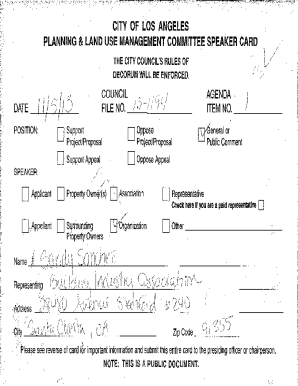 CITY OF LOS ANGELES
PLANNING & LAND USE MANAGEMENT COMMITTEE SPEAKER CARD
THE CITY COUNCIL'S RULES OF
DECORUM WILL BE ENFORCED.
DATE 11/5/13 COUNCIL FILE NO. AGENDA ITEM NO. 1
POSITION: Support Project/Proposal Oppose Project/Proposal General or Public Comment
Support Appeal Oppose Appeal
SPEAKER:
Applicant Property Owner(s) Association Representative
Check here if you are a paid representative
Appellant Surrounding Property Owners Organization Other
Name Sandy Sanchez
Representing Building Industry Association
Address Avenue Stanford # 240
City Santa Clarita, CA Zip Code 91355
Please see reverse of card for important information and submit this entire card to the presiding officer or chairperson.
NOTE: THIS IS A PUBLIC DOCUMENT.